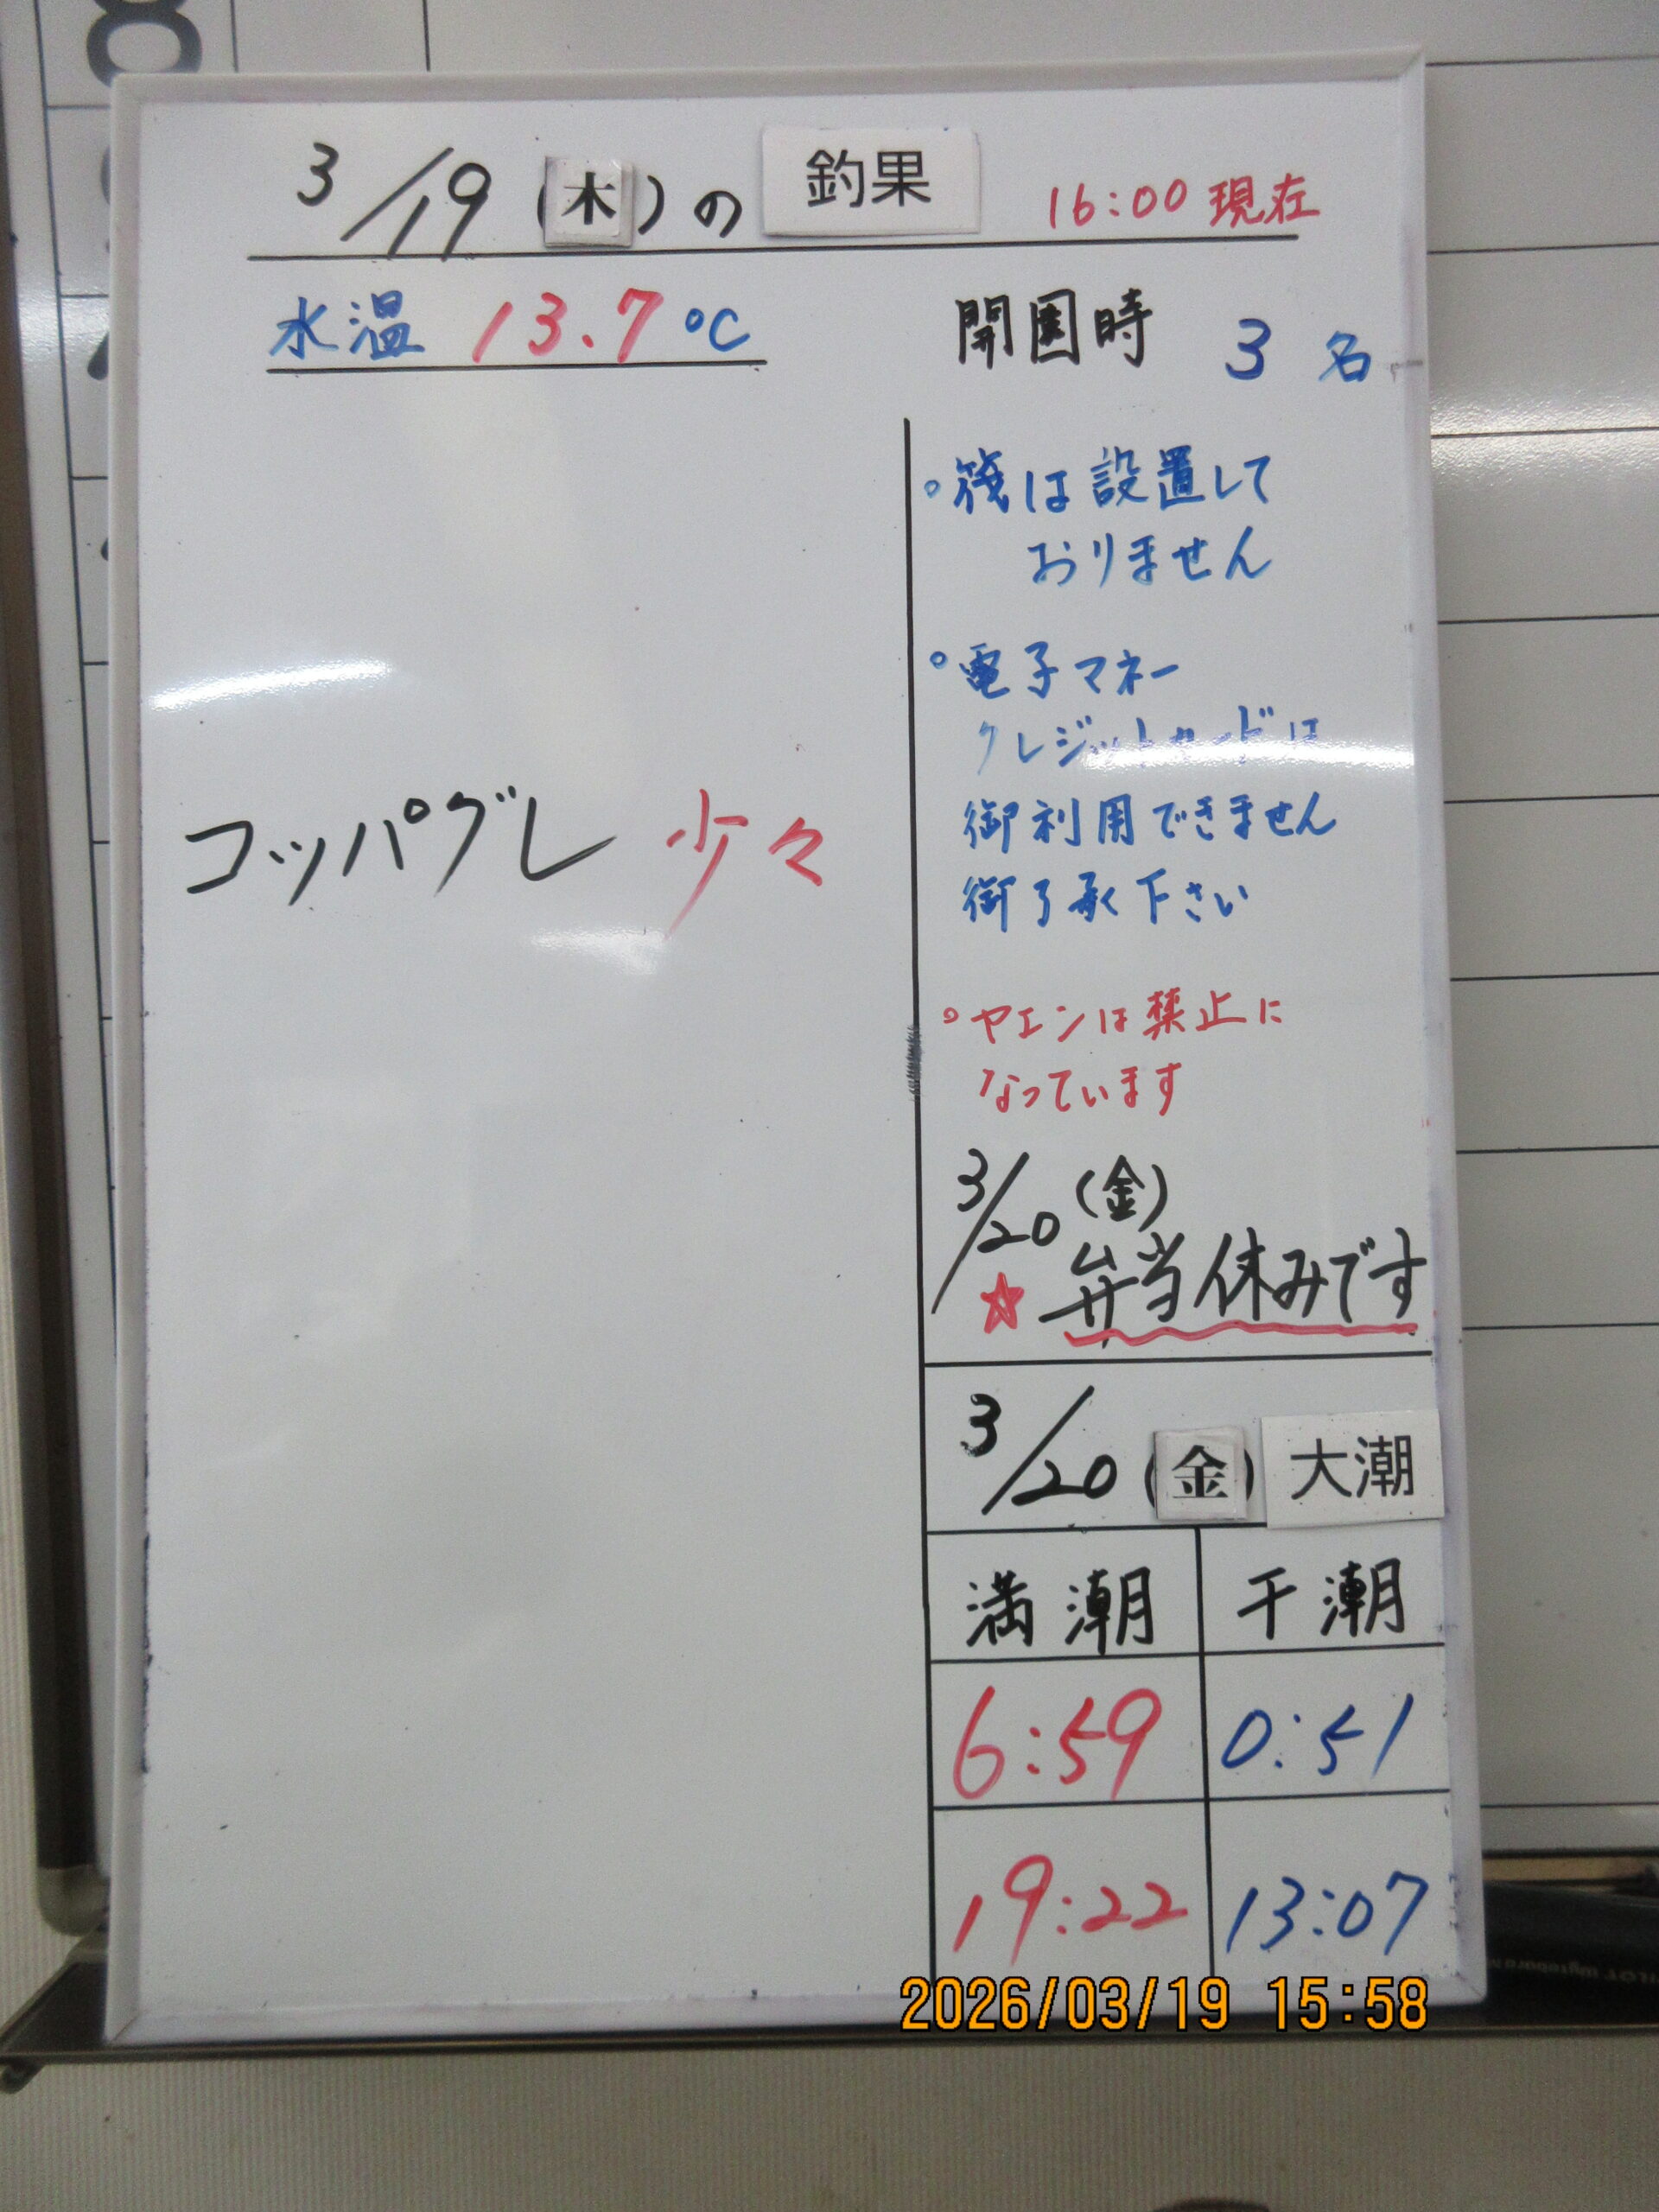 3/19(木)の 釣果 16:00現在
水温 13.7℃
開園時 3名
コッパグレ 少々
。筏は設置して
おりません
。電子マネー
クレジットカードは
御利用できません
御了承下さい
。ヤエンは禁止に
なっています
3/20(金)
☆弁当休みです
3/20(金) 大潮
満潮 干潮
6:59 0:51
19:22 13:07
2026/03/19 15:58